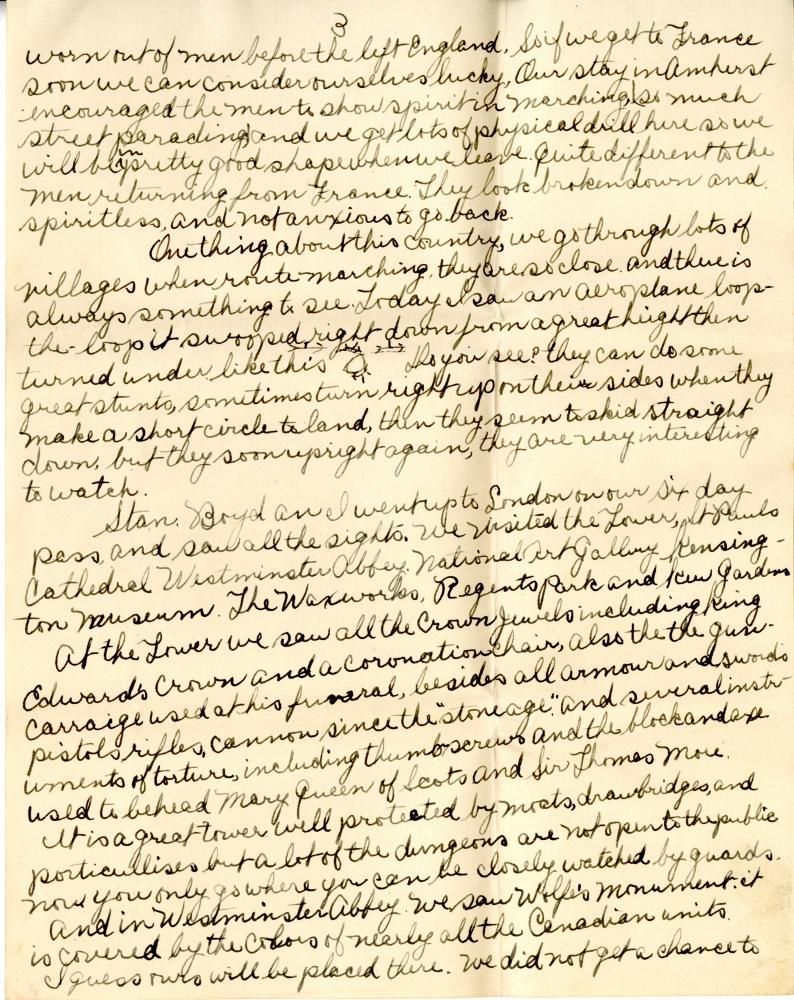 3
worn out of men before the left England. So if we get to France
soon we can consider ourselves lucky, Our stay in Amherst
encouraged the men to show spirit in marching, (so much
street parading) and we get lots of physical drill here so we
will be in pretty good shape when we leave. Quite different to the
men returning from France. They look broken down and
spiritless, and not anxious to go back.
One thing about this country, we go through lots of
villages when route marching, they are so close. and there is
always something to see. Today I saw an aeroplane loop-
the-loop it swooped right down from a great height then
turned under like this Do you see? they can do some
great stunts, sometimes turn right up on their sides when they
make a short circle to land, then they seem to skid straight
down, but they soon upright again, they are very interesting
to watch.
Stan. Boyd an I went up to London on our six day
pass, and saw all the sights. We visited the Tower, St Pauls
Cathedral Westminster Abbey. National Art Gallery Kensing-
ton Museum. The Waxworks, Regents Park and Kew Gardens
At the Tower we saw all the Crown Jewels including King
Edwards Crown and a coronation chair, also the the gun-
carraige used at his funeral, besides all armour and swords
pistols, rifles, cannon, since the "stone age". and several instr-
uments of torture, including thumb-screws and the block and axe
used to behead Mary Queen of Scots and Sir Thomas More.
It is a great tower well protected by moats, drawbridges, and
porticullises but a lot of the dungeons are not open to the public
now you only go where you can be closely watched by guards.
And in Westminster Abbey. We saw Wolfe's Monument. it
is covered by the colors of nearly all the Canadian units.
I guess ours will be placed there. We did not get a chance to